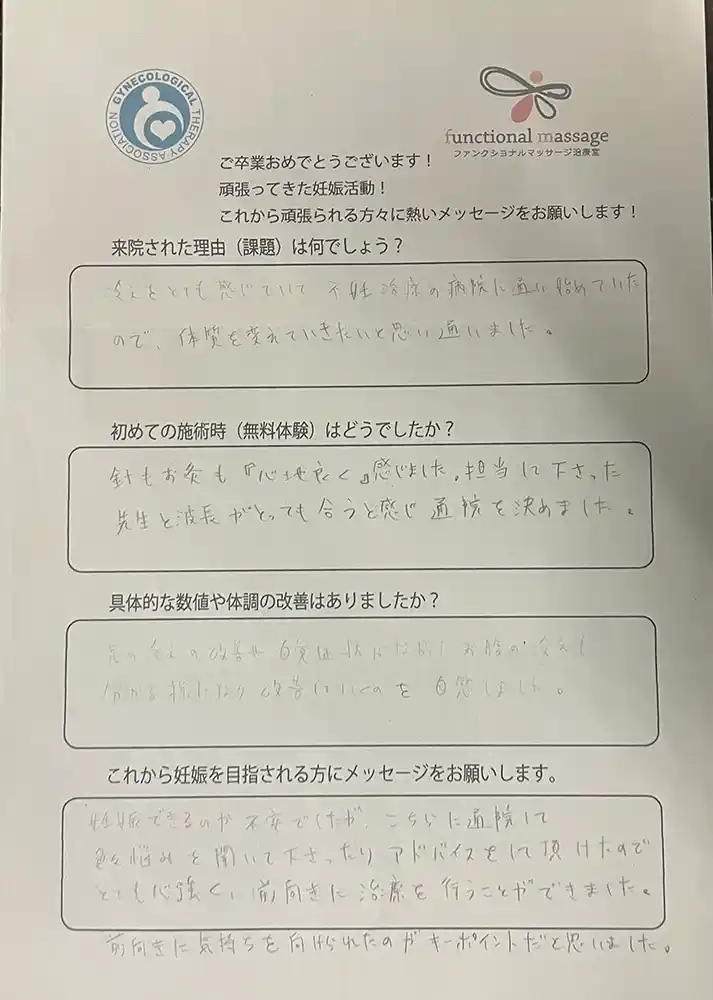 GYNECOLOGICAL THERAPY ASSOCIATION
functional massage
ファンクショナルマッサージ治療室
ご卒業おめでとうございます！
頑張ってきた妊娠活動！
これから頑張られる方々に熱いメッセージをお願いします！
来院された理由（課題）は何でしょう？
冷えをとても感じていて 不妊治療の病院に通い始めていた
ので、体質を変えていきたいと思い通いました。
初めての施術時（無料体験）はどうでしたか？
針もお灸も『心地良く』感じました。担当して下さった
先生と波長がとっても合うと感じ 通院を決めました。
具体的な数値や体調の改善はありましたか？
足の冷えの改善や 自覚症状はなかった お腹の冷えも
分かる様になり 改善していくのを 自感しました。
これから妊娠を目指される方にメッセージをお願いします。
妊娠できるのか不安でしたが、こちらに通院して
色々悩みを聞いて下さったり アドバイスをして頂けたので
とても心強く、前向きに治療を行うことができました。
前向きに気持ちを向けられたのがキーポイントだと思いました。